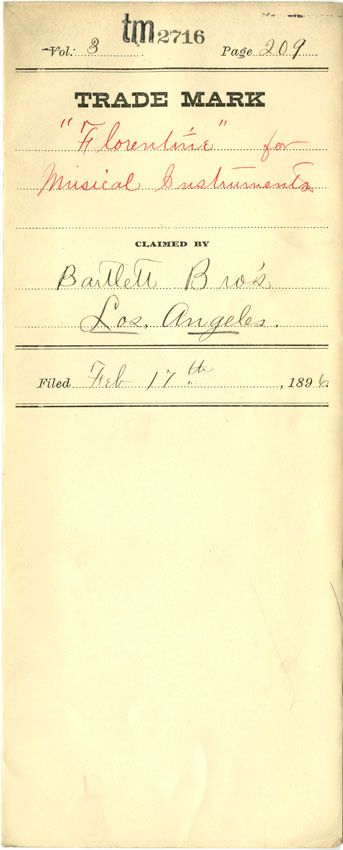 tm 2716
Vol. 3 Page 209
TRADE MARK
"Florentine" for
Musical Instruments
CLAIMED BY
Bartlett Bro's
Los. Angeles.
Filed Feb 17th, 1896.